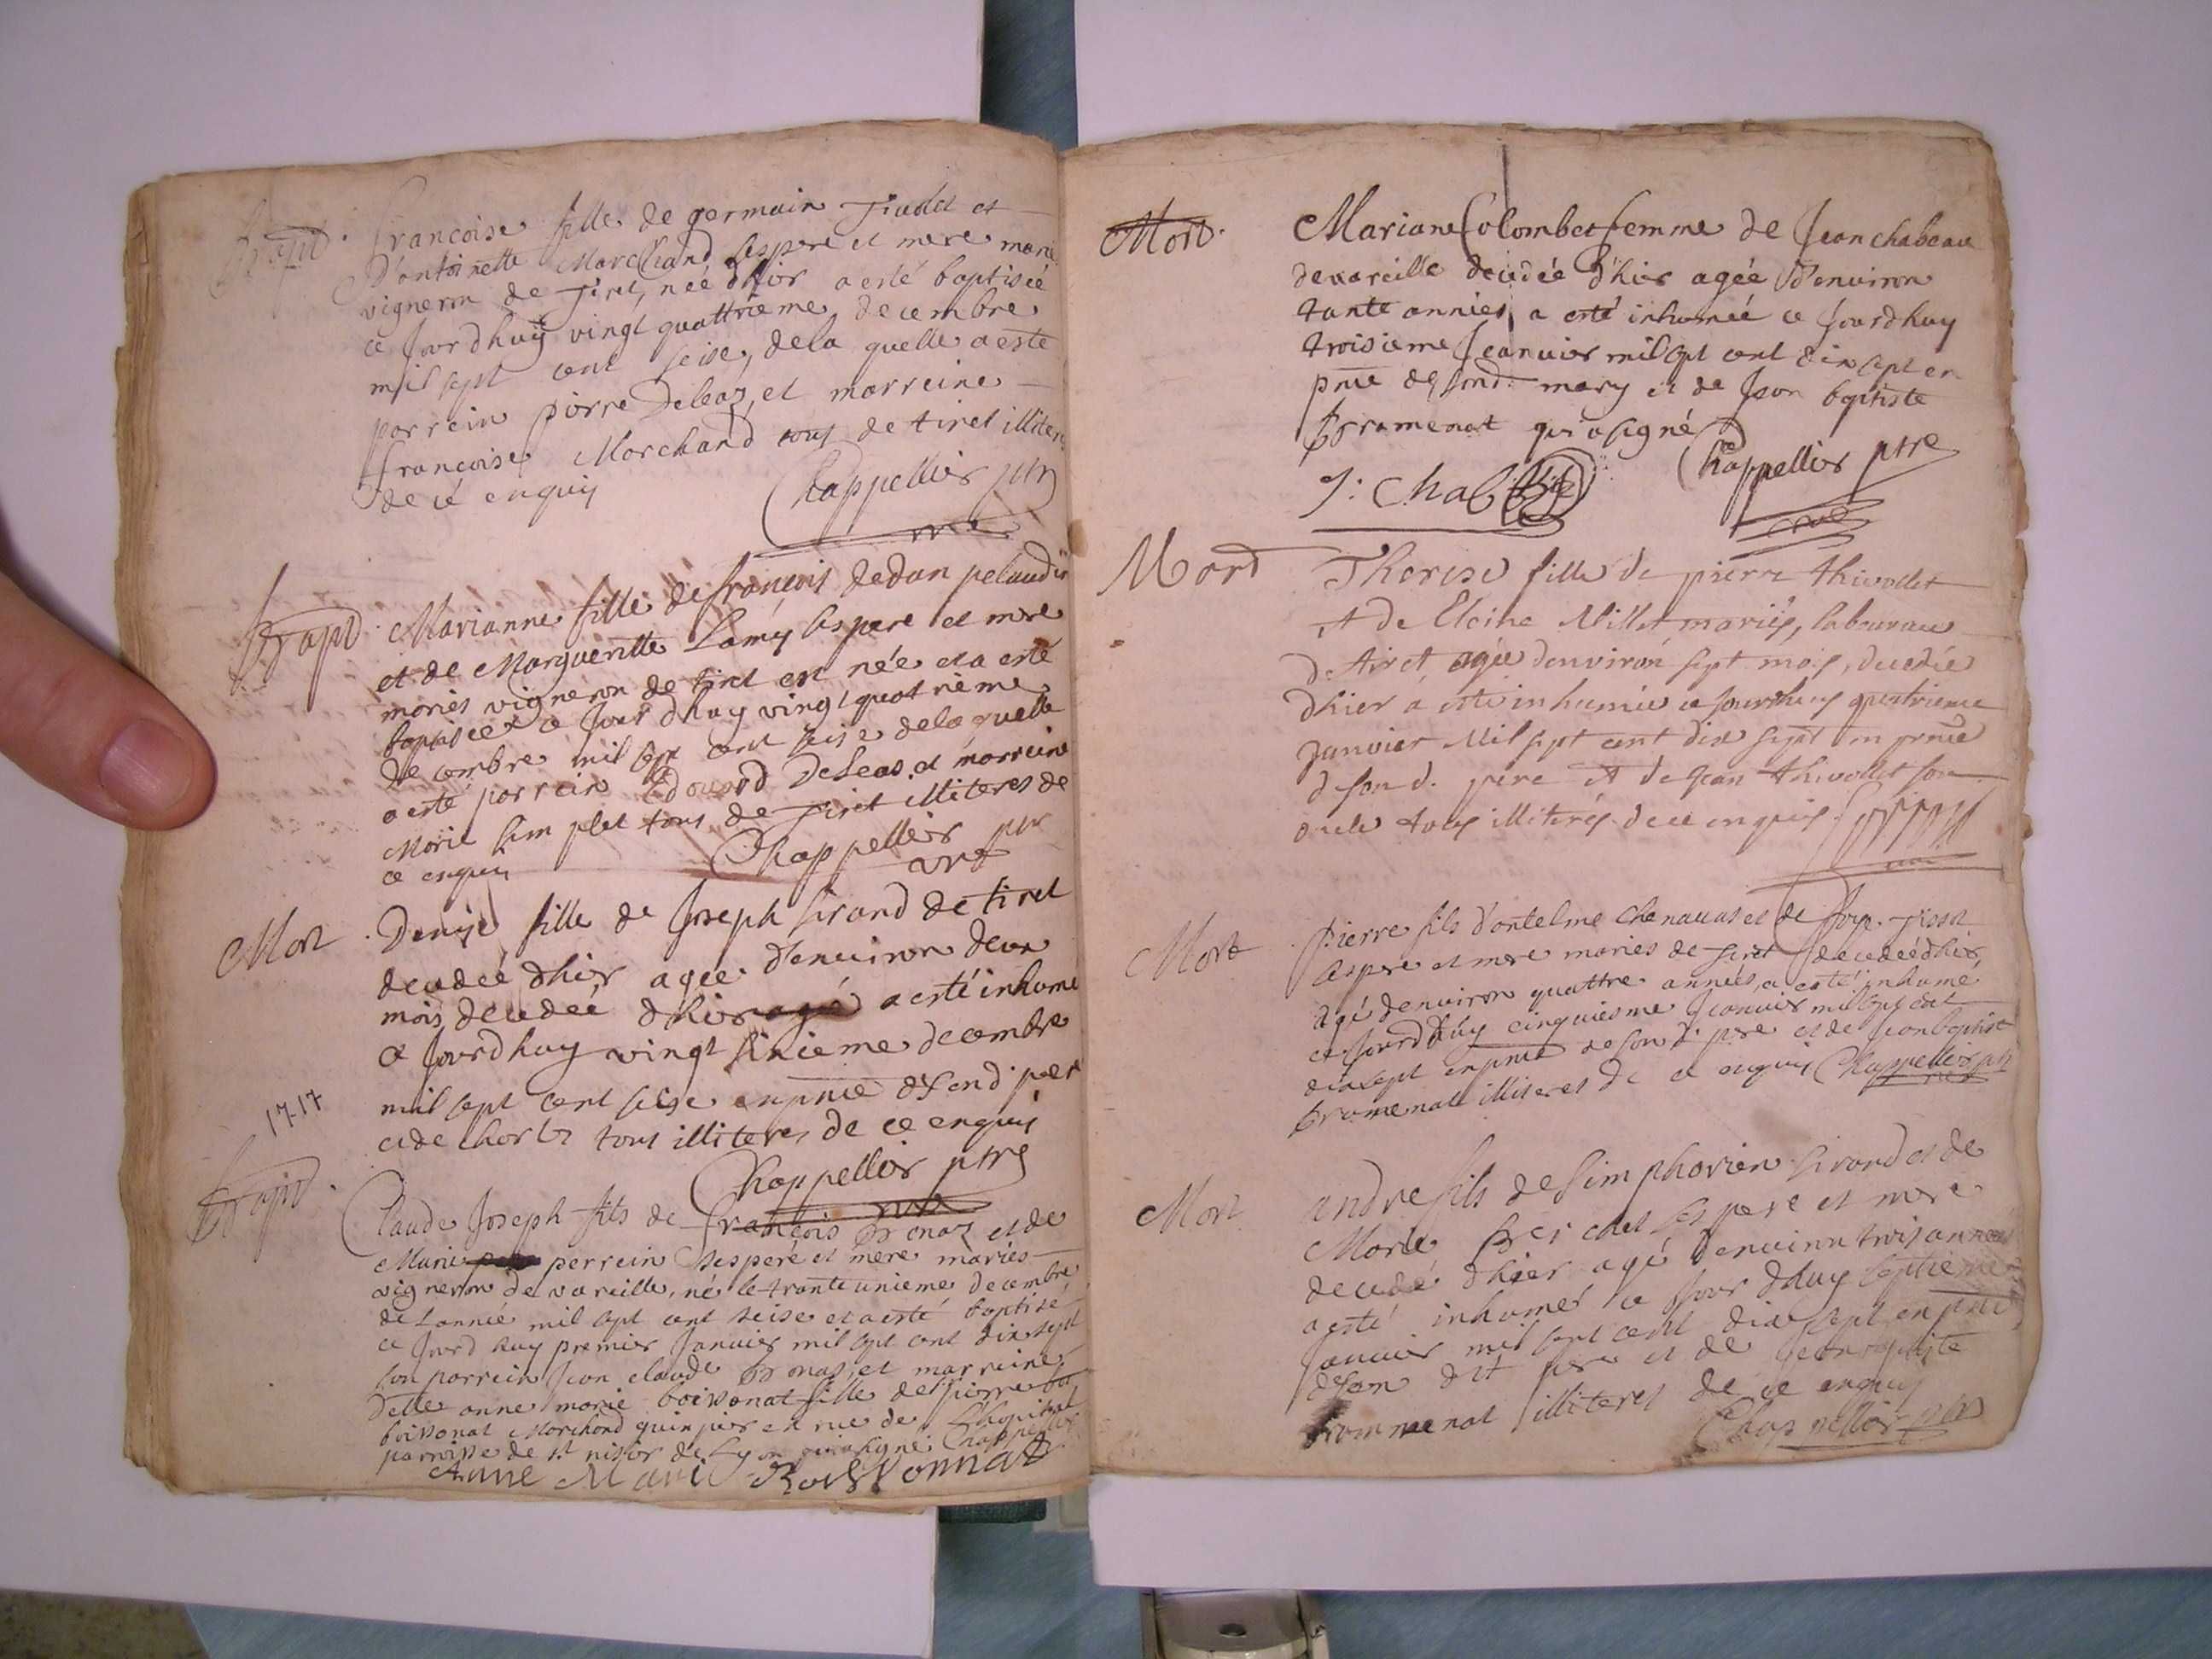 Bapt. Francoise fille de germain et
D'antoinette Marchand ses pere et mere marie
vigneron de Tiret, née d'hier a esté baptiseé
ce Jourdhuy vingt quattrieme decembre
mil sept cent seise, de la quelle a esté
parrein pierre Deleas, et marreine
francoise Marchand tous de tiret illiteres
de cé enquis Chappellier ptre
Bapt. Marianne fille de françois dedan pelaudin
et de Margueritte Lamy ses pere et mere
mariés vigneron de tiret est née et a esté
baptisée ce Jourdhuy vingt quatrième
decembre mil sept cent seise de la quelle
a esté parrein Edouard Deleas et marreine
Marie simplet tous de Tiret illiteres de
ce enquis Chappellier ptre
Mort Denise fille de Joseph sirand de tiret
decedeé d'hier agée d'environ deux
mois decedeé d'hier agé a esté inhumé
ce Jourdhuy vingt sixieme decembre
mil sept cent seise en pnce de sond. pere
et de tous illiteres de ce enquis
Chappellier ptre
1717
Bapt. Claude Joseph fils de françois Bonaz et de
Marie perrein ses peré et mere mariés
vigneron de vareille, né le trante unieme decembre
de Lannée mil sept cent seise et a esté baptisé
ce Jourdhuy premier Januier mil sept cent dix sept
son parrein Jean claude Bonas, et marreine
delle anne marie boissonat fille de pierre
boissonat Marchand guimpier en rue de l'hopital
parroisse de st nisier de Lyon qui a signé Chappellier
Anne Marie Boissonnat
Mort. Mariane Colombet femme de Jean chabeau
de vareille decedée d'hier agée d'environ
tante années, a esté inhumée ce Jourdhuy
troisieme Jeanuier mil sept cent dix sept en
pnce de sond. mary et de Jean baptiste
framenat qui a signé
J: Chab Chappellier ptre
Mort Therese fille de pierre thivollet
et de Eleine Millet mariés, laboureur
de tiret agée denviron sept mois, decedée
dhier a esté inhumée ce Jourdhuy quatrieme
Janvier Mil sept cent dix sept en pnce
de son d. pere et de Jean thivollet son
oncle tous illiterés de ce enquis
Mort pierre fils d'antelme chenauas et de
ses pere et mere maries de tiret decedeé d'hier
agé denviron quattre années, a esté inhumé
ce Jourdhuy cinquiesme Januier mil sept cent
dix sept en pnce de son d. pere et de Jean baptiste
framenat illiteres de ce enquis Chappellier ptre
Mort andre fils de simphorien sirand et de
Marie ses pere et mere
decedé d'hier agé denviron trois années
a esté inhumé ce Jourdhuy septieme
Januier mil sept cent dix sept en pnce
de son dit pere et de Jean baptiste
frommenat illiteres de ce enquis
Chappellier ptre